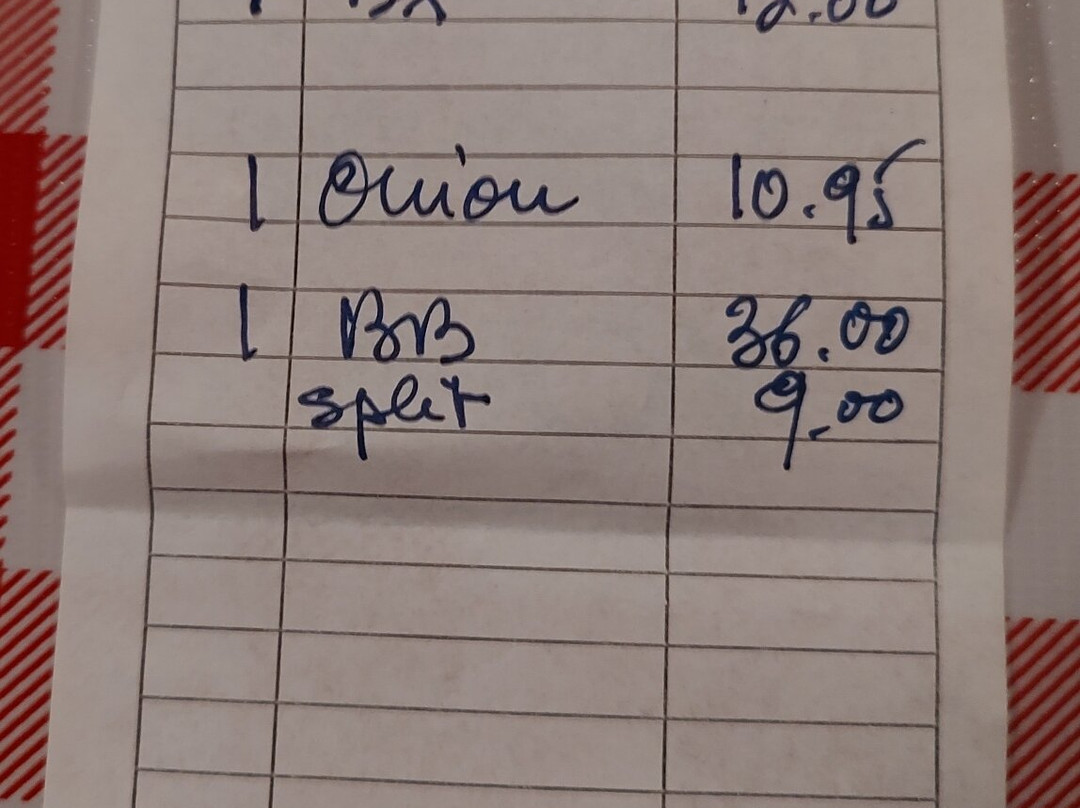 12.00
1 Onion 10.95
1 BB 36.00
split 9.00